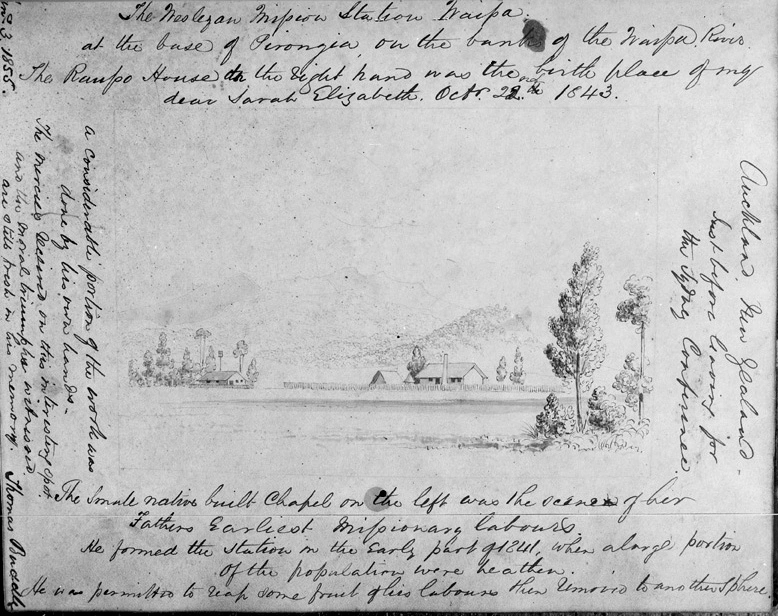 The Wesleyan Mission Station Waipa.
at the base of Pirongia, on the bank of the Waipa River.
The Raupo House on the right hand was the birth place of my
dear Sarah Elizabeth. Octr. 22nd 1843.
Auckland, New Zealand -
Just before leaving for
the Sydney Conference.
The small native built Chapel on the left was the scene of her
Fathers Earliest Missionary labours
He formed the Station in the Early part of 1841, when a large portion
of the population were heathen.
He was permitted to reap some fruit of his labours then removed to another Sphere.
a considerable portion of the work was
done by his own hands -
The mercies received on this interesting spot
and the moral triumphs witnessed
are still fresh in his memory. Thomas Buddle
3. 1855.